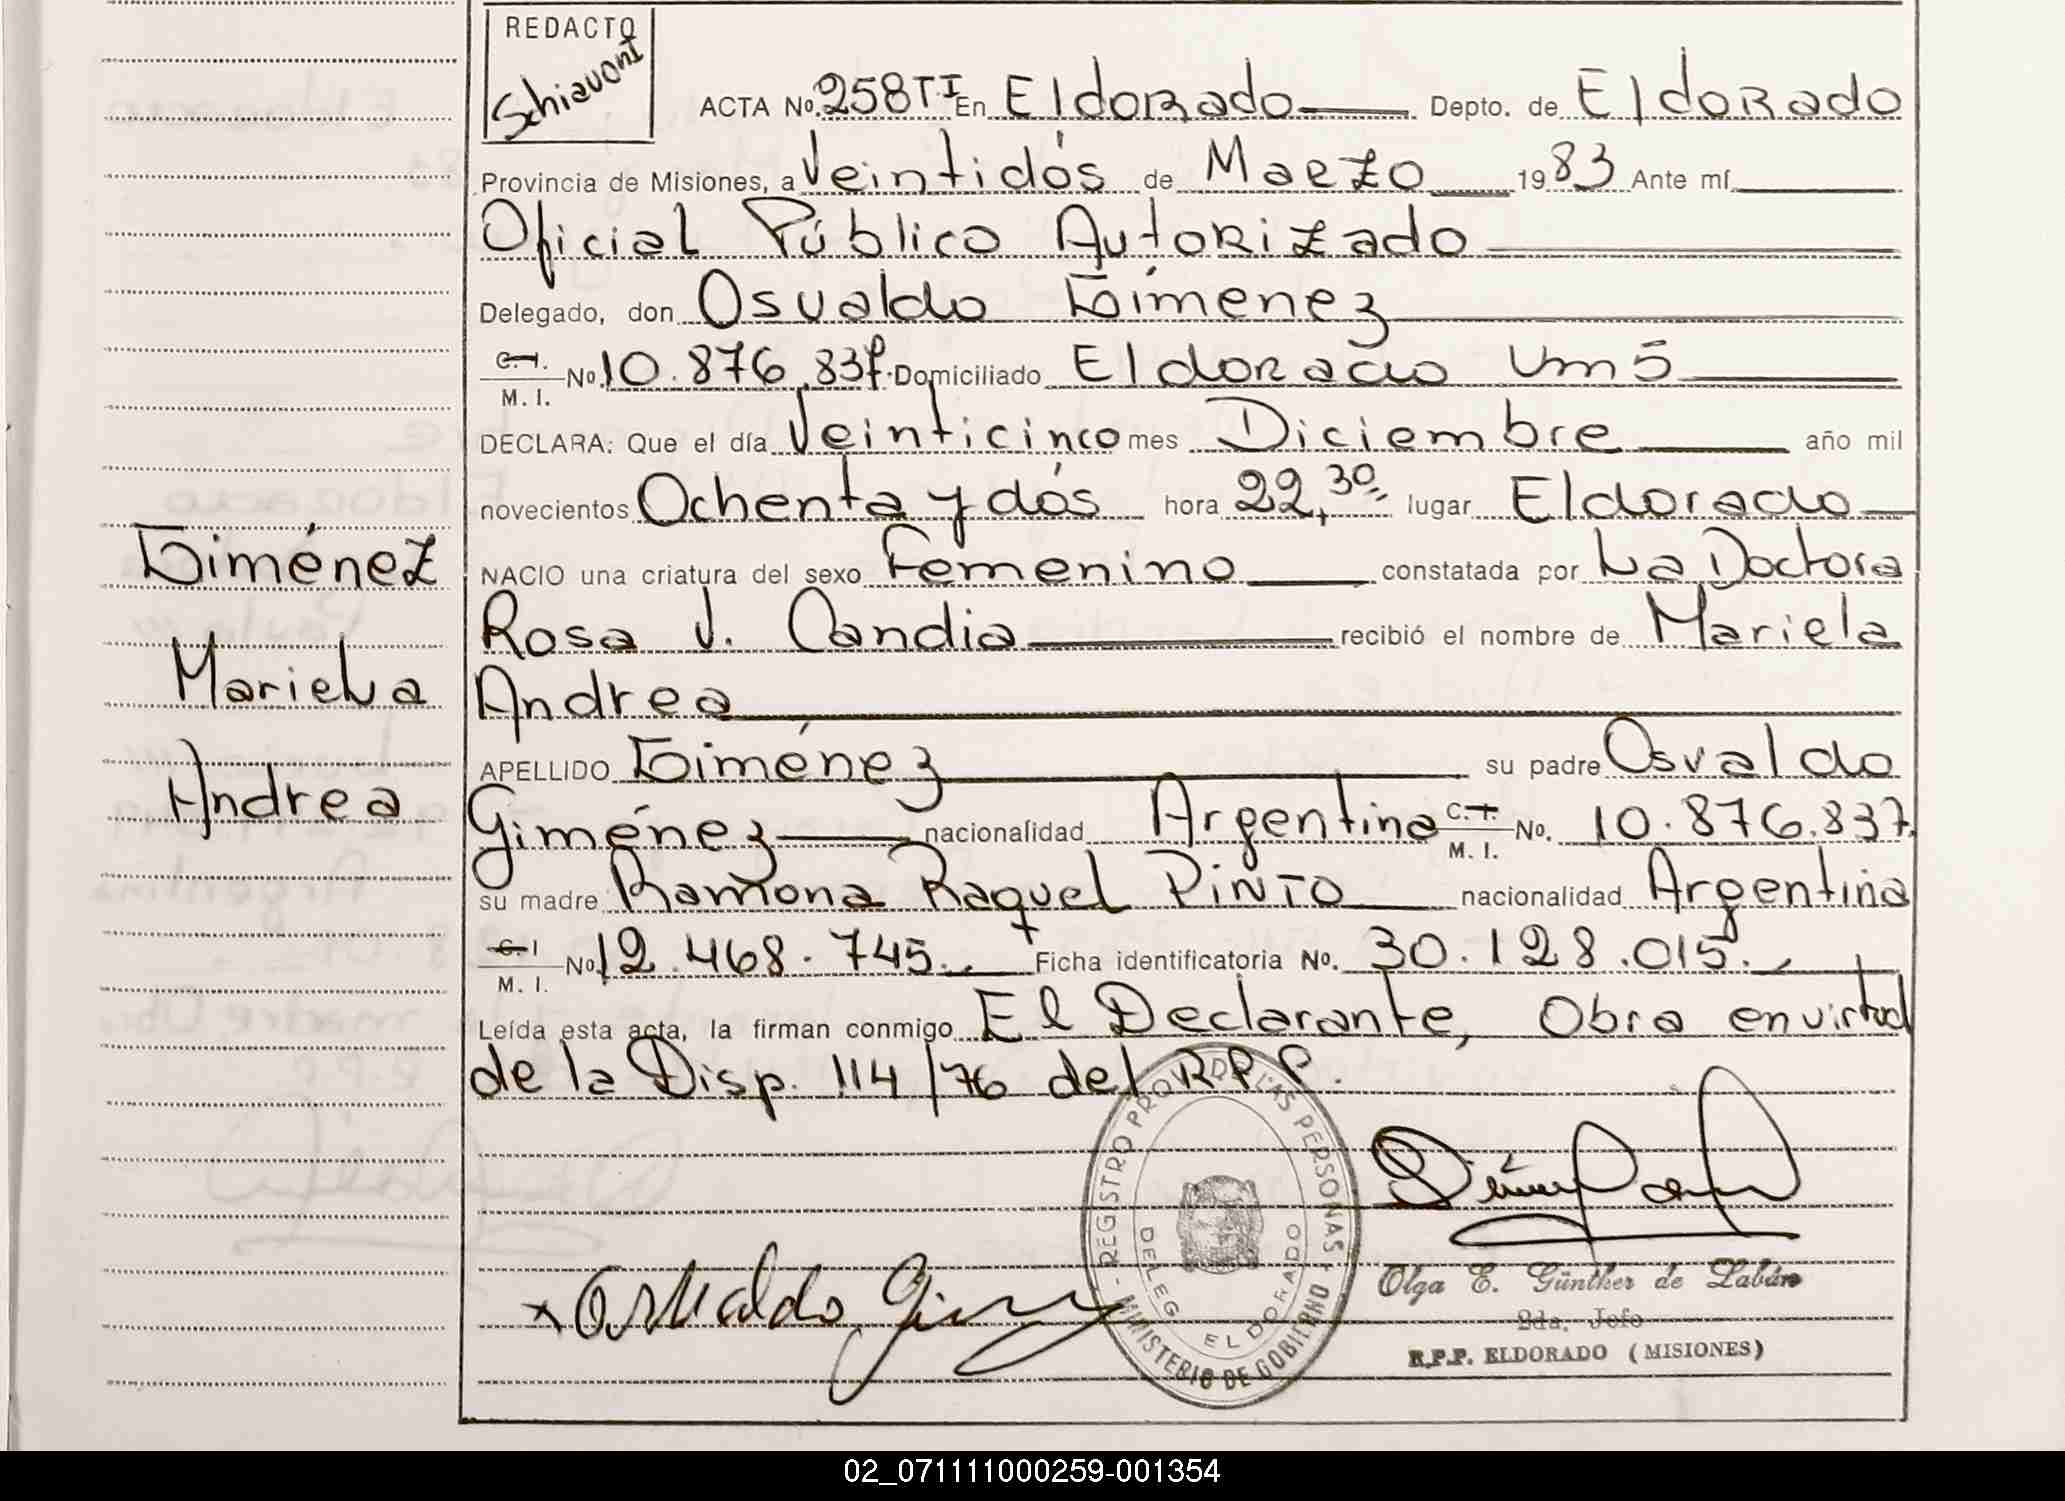 REDACTO
Schiavoni
ACTA No. 258 TI En Eldorado Depto. de Eldorado
Provincia de Misiones, a Veintidós de Marzo 1983 Ante mí
Oficial Público Autorizado
Delegado, don Osvaldo Giménez
C.I. M. I. No. 10.876.837. Domiciliado Eldorado Km 5
DECLARA: Que el día Veinticinco mes Diciembre año mil
novecientos Ochenta y dós hora 22,30 lugar Eldorado
NACIO una criatura del sexo Femenino constatada por La Doctora
Rosa J. Candia recibió el nombre de Mariela
Andrea
APELLIDO Giménez su padre Osvaldo
Giménez nacionalidad Argentina C.I. M. I. No. 10.876.837.
su madre Ramona Raquel PINTO nacionalidad Argentina
C.I. M. I. No. 12.468.745. Ficha identificatoria No. 30.128.015.
Leída esta acta, la firman conmigo El Declarante, Obra en virtud
de la Disp. 114/76 del R.P.P.
Giménez
Mariela
Andrea
REGISTRO PROV. DE LAS PERSONAS
MINISTERIO DE GOBIERNO
DELEG. ELDORADO
x Osvaldo Gimenez
Olga E. Günther de Labán
2da. Jefe
R.P.P. ELDORADO (MISIONES)
02_071111000259-001354